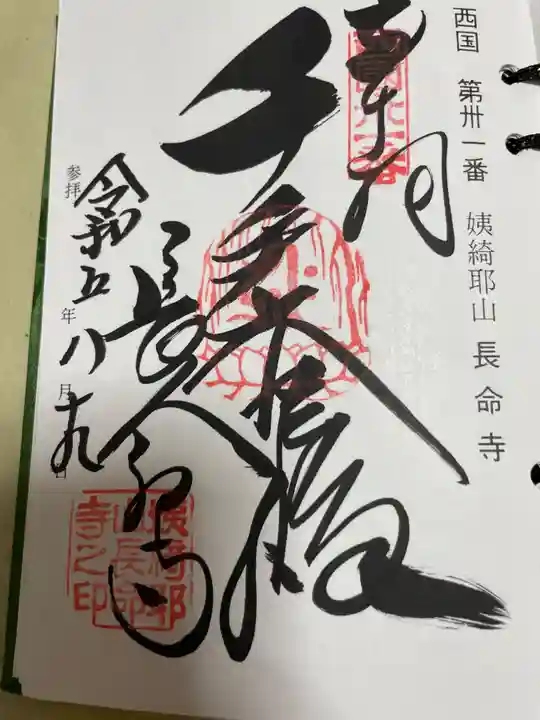 西国 第卅一番 姨綺耶山 長命寺
奉拝
千手大悲殿
長命寺
参拝 令和五年八月十九日
姨綺耶
山長命
寺之印